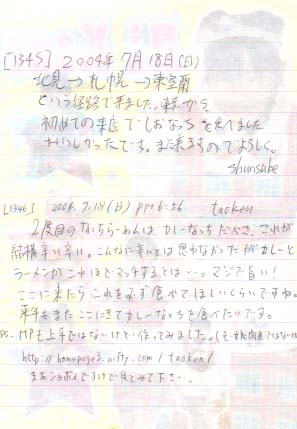 [1345] 2004年 7月18日(日)
北見→札幌→東室蘭
という経路で来ました。
初めての来店でしおなっちを食べました
おいしかったです。また来ますのでよろしく。
shunsuke
[1346] 2004.7.18(日) pm 6:56 taoken
2度目のなっちらーめんはカレーなっちだべさ。これが
結構辛い辛い。こんなに辛いとは思わなかったがカレーと
ラーメンがこれほどマッチするとは…。マジで旨い!
ここに来たらこれを必ず食べてほしいくらいですね。
来年もまたここにきてカレーなっちを食べたいです。
PS. HPも上手ではないけど作ってみました。
http://homepage3.nifty.com/taoken/
まあショボイですけど見てみて下さい。